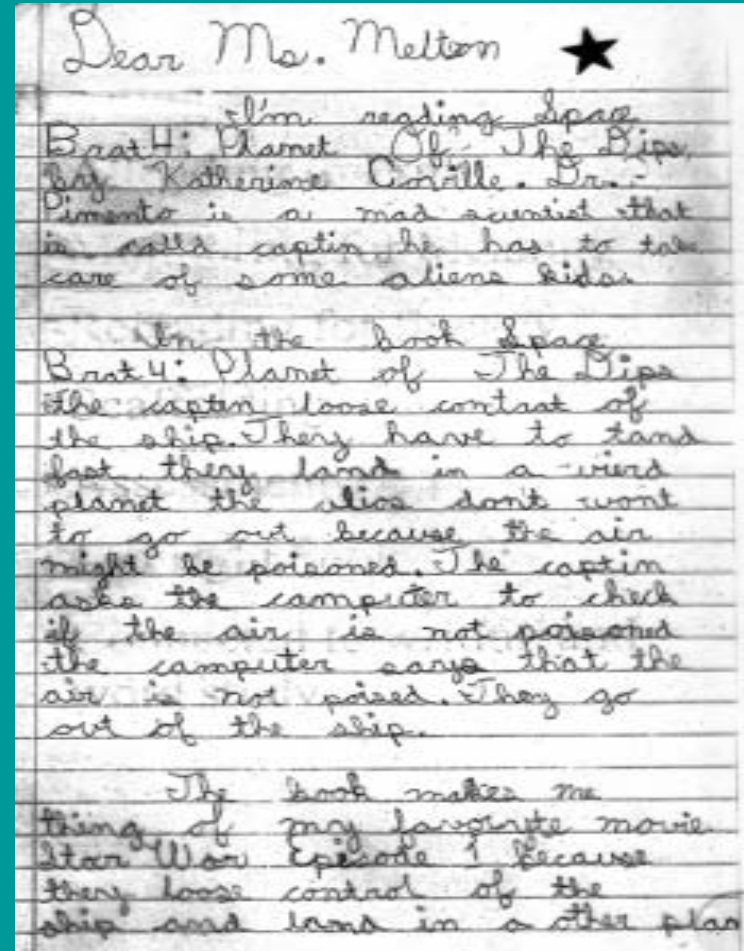 Dear Ms. Melton
I'm reading Space
Brat 4: Planet Of The Dips,
by Katherine Coville. Dr.
Pimento is a mad scientist that
is calld captin he has to take
care of some aliens kids.
In the book Space
Brat 4: Planet of The Dips
the capten loose control of
the ship. They have to land
fast they land in a wierd
planet the alios dont wont
to go out because the air
might be poisoned. The captin
asks the computer to check
if the air is not poisoned
the computer says that the
air is not poised. They go
out of the ship.
The book makes me
thing of my favorite movie
Star War Episode 1 because
they loose control of the
ship and land in a other plan